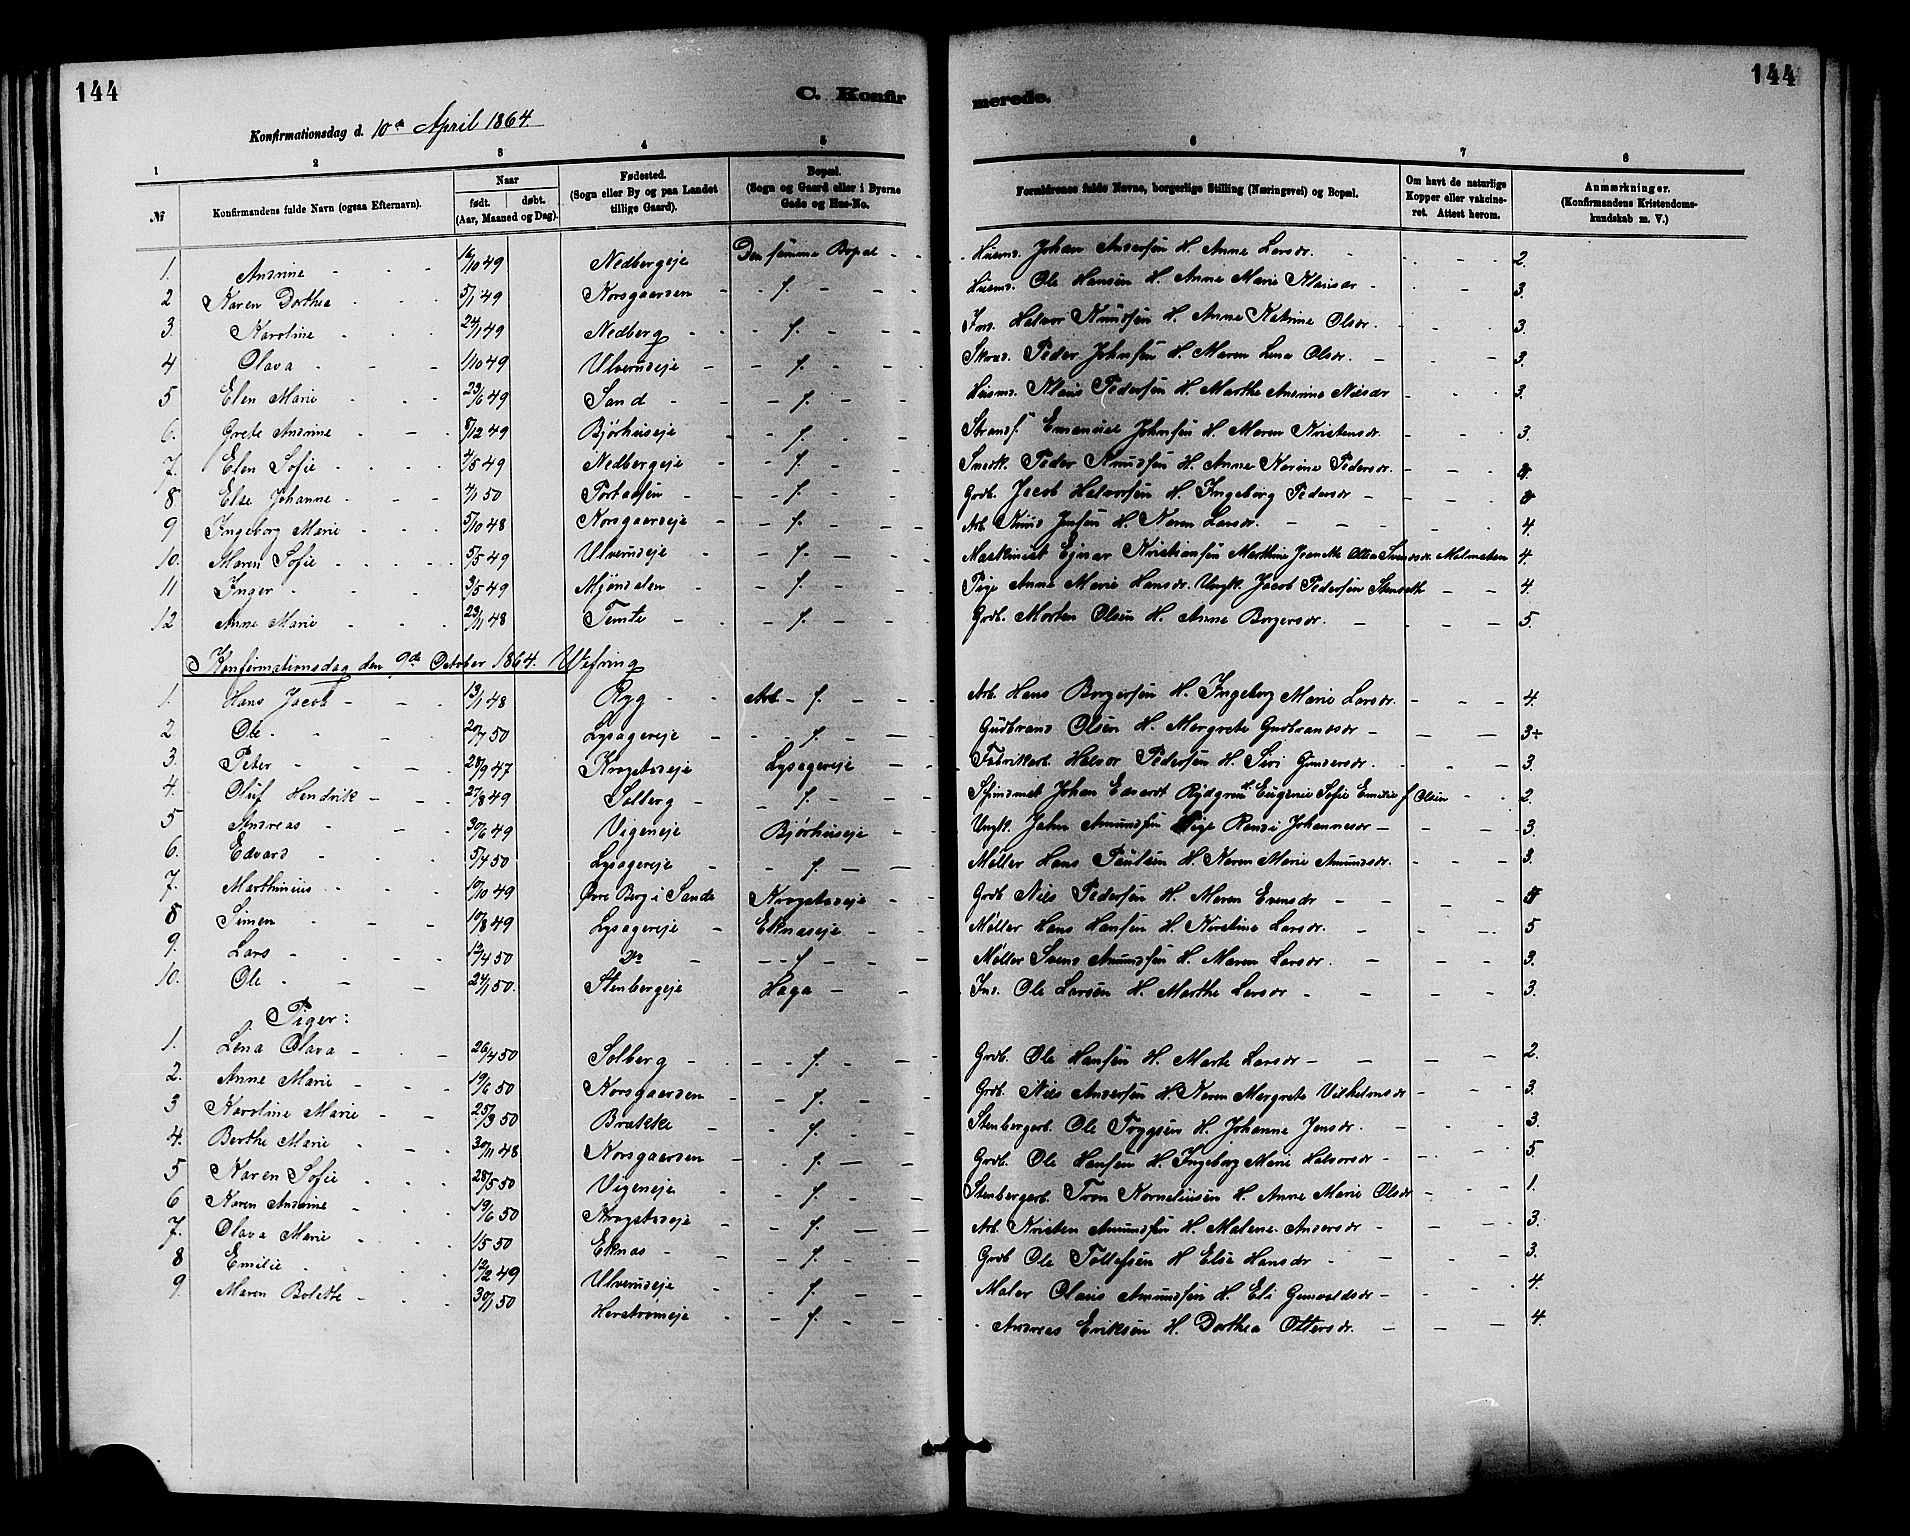 144
C. Konfirmerede.
144
Konfirmationsdag d. 10de April 1864.
1 2 3 4 5 6 7 8
№ Konfirmandens fulde Navn (ogsaa Efternavn). Naar født. døbt. (Aar, Maaned og Dag). Fødested. (Sogn eller By og paa Landet tillige Gaard). Bopæl. (Sogn og Gaard eller i Byerne Gade og Hus-No. Forældrenes fulde Navne, borgerlige Stilling (Næringsvei) og Bopæl. Om havt de naturlige Kopper eller vakcineret. Attest herom. Anmærkninger. (Konfirmandens Kristendomskundskab m. V.)
1. Andrine - - - 16/10 49 Nedbergeje Den samme Bopæl - - Husmd. Johan Andersen H. Anne Larsdr. - - - - 2.
2 Karen Dorthea - - - 5/1 49 Korsgaarden - - f. - - Husmd. Ole Hansen H. Anne Marie Klausdr - - - 3.
3. Karoline - - - 24/1 49 Nedberg - - f. - - Ind. Halvor Knudsen H. Anne Katrine Olsdr. - - - 3.
4 Olava - - - 1/10 49 Ulverudeje - - f. - - Peder Johnsen H. Maren Lena Olsdr. - - - 3.
5 Elen Marie - - 23/6 49 Sand - - - f. - - Husmd. Klaus Pedersen H. Marthe Andrine Nielsdr - - - 3.
6. Grete Andrine - - - 8/12 49 Bjørhuseje - - f. - - Strandf. Emanuel Johnsen H. Maren Kristensdr. - - - 3.
7. Elen Sofie - - - - 4/5 49 Nedbergeje - - f. - - Snedk. Peder Knudsen H. Anne Karine Pedersdr. - - -
8 Else Johanne - - - 4/1 50 Portaasen - - f. - - Grdb. Jacob Halvorsen H. Ingeborg Pedersdr - - - -
9 Ingeborg Marie - - - 5/10 48 Korsgaardeje - - f. - - Arb. Knud Jensen H. Karen Larsdr. - - - - 4.
10. Maren Sofie - - - - 5/5 49 Ulverudeje - - f. - - Maskinist Ejnar Kristiansen Marthine Jeanette Olsen 4.
11 Inger - - - - 3/5 49 Mjøndalen - - f. - - Pige Anne Marie Hansdr. Ungk. Jacob Pedersen Stenseth - - 4.
12 Anne Marie - - - 23/11 48 Temte - - f. - - Grdb. Morten Olsen H. Anne Borgersdr. - - - - 5.
Konfirmationsdag den 9de October 1864. Wefring
1. Hans Jacob - - - 13/1 48 Ryg - - Arb - f. - - Arb. Hans Borgersen H. Ingeborg Marie Larsdr. - - - 4.
2 Ole - - - - 20/7 50 Lysagereje - - f. - - Gudbrand Olsen H. Mergrete Gudbrandsdr - - - 3÷
3. Peter - - - - 28/9 47 Krogstadeje Lysagereje - - Fabrikarb. Halvor Pedersen H. Siri Gundersdr. - - - 3.
4. Oluf Hendrik - - - 27/8 49 Solberg - - f. - - Spindmst. Johan Edvardt Rydgren H. Eugenie Sofie Emilie f Olsen - - 2.
5 Andreas - - - 30/6 49 Vigeneje Bjørhuseje - - Ungk. John Amundsen Pige Randi Johannesdr - - - 3.
6. Edvard - - - 5/4 50 Lysagereje - - f. - - Møller Hans Paulsen H. Karen Marie Amundsdr. - - - 3.
7. Marthinius - - - 10/10 49 Øvre Berg i Sande Krogstadeje - - Grdb. Nils Pedersen H. Maren Evensdr - - - -
8 Simen - - - 10/8 49 Lysagereje - Eknaseje - - Møller Hans Hansen H. Kirstine Larsdr. - - - - 5
9. Lars - - - - 12/4 50 do - - f. - - Møller Svend Amundsen H. Maren Larsdr. - - - - 3.
10. Ole - - - 24/1 50. Stenbergeje Haga - - Ind. Ole Larsen H. Marthe Larsdr - - - - 3.
Piger:
1. Lena Olava - - - 26/4 50 Solberg - - f. - - Grdb. Ole Hansen H. Marte Larsdr - - - - 2.
2. Anne Marie - - - 19/6 50 Korsgaarden - - f. - - Grdb. Nils Andersen H. Karen Mergrete Vilhelmsdr - - - 3.
3 Karoline Marie - - 25/3 50 Brække - - f. - - Stenbergarb. Ole Tryggsen H. Johanne Jensdr. - - - 3.
4. Berthe Marie - - 30/11 48 Korsgaarden - - f. - - Grdb. Ole Hansen H. Ingeborg Marie Halvorsdr - - - 5.
5 Karen Sofie - - - 28/5 50 Vigeneje - - f. - - Stenbergarb. Tron Korneliusen H. Anne Marie Olsdr - - - 1.
6 Karen Andrine - - - 19/6 50 Krogstadeje - - f. - - Arb. Kristen Amundsen H. Malene Andersdr - - - 3.
7. Olava Marie - - - 1/5 50 Eknas - - f. - - Grdb. Ole Tollefsen H Else Hansdr - - - - 3.
8 Emilie - - - 12/2 49 Ulverudeje - - f. - - Maler Olaus Amundsen H. Eli Gunvaldsdr - - - 4.
9. Maren Bolette - - - 30/1 50 Herstrømeje - - f. - - Andreas Eriksen H. Dorthea Ottersdr. - - - 4.